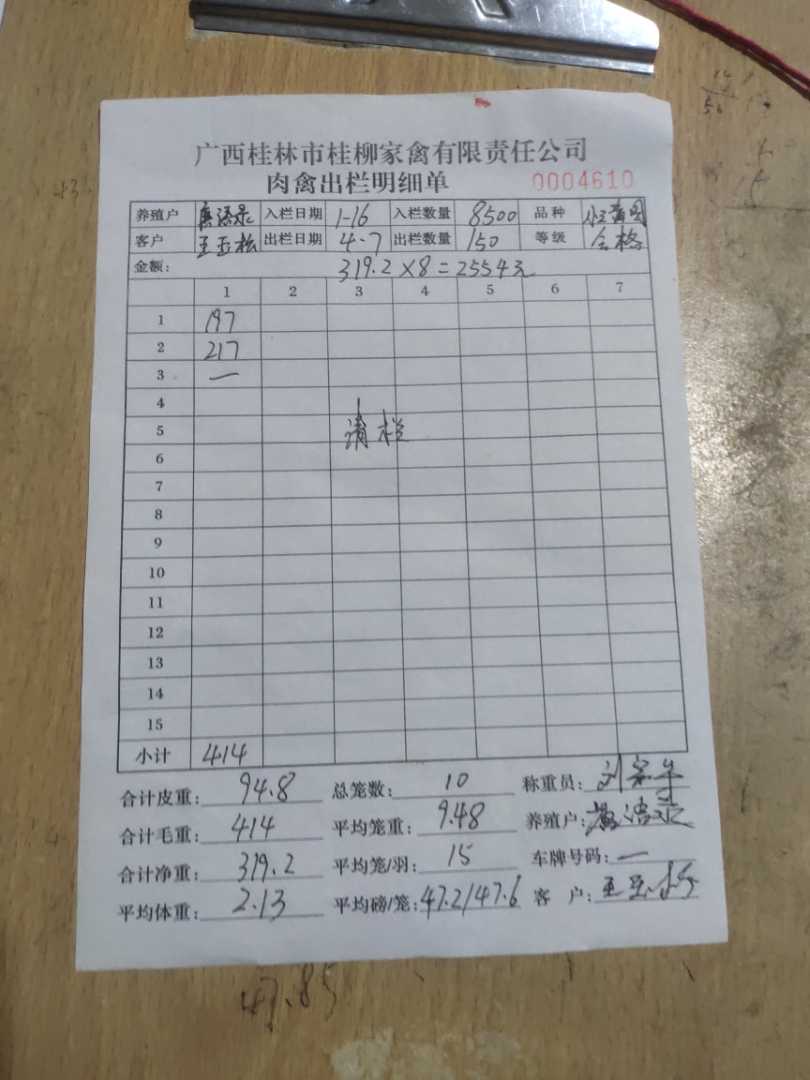 广西桂林市桂柳家禽有限责任公司
肉禽出栏明细单 0004610
养殖户 入栏日期 1-16 入栏数量 8500 品种
客户 王玉松 出栏日期 4.7 出栏数量 150 等级 合格
金额: 319.2×8=2554元
1 2 3 4 5 6 7
1 197
2 217
3 一
4
5 清栏
6
7
8
9
10
11
12
13
14
15
小计 414
合计皮重: 94.8 总笼数: 10 称重员:
合计毛重: 414 平均笼重: 9.48 养殖户:
合计净重: 319.2 平均笼/羽: 15 车牌号码: 一
平均体重: 2.13 平均磅/笼: 47.2/47.6 客 户: 王玉松
47.85